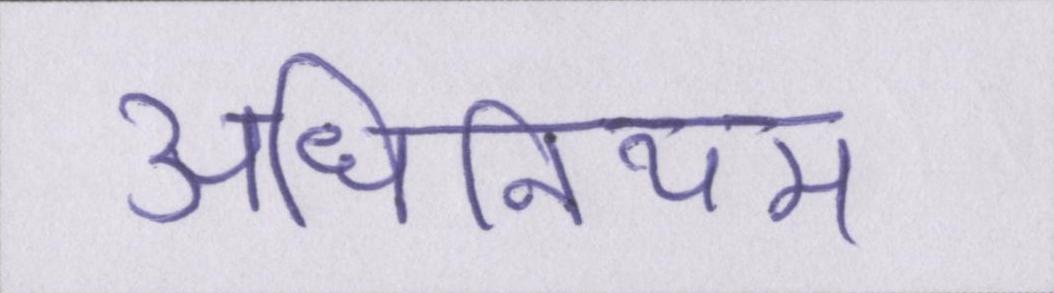 अधिनियम